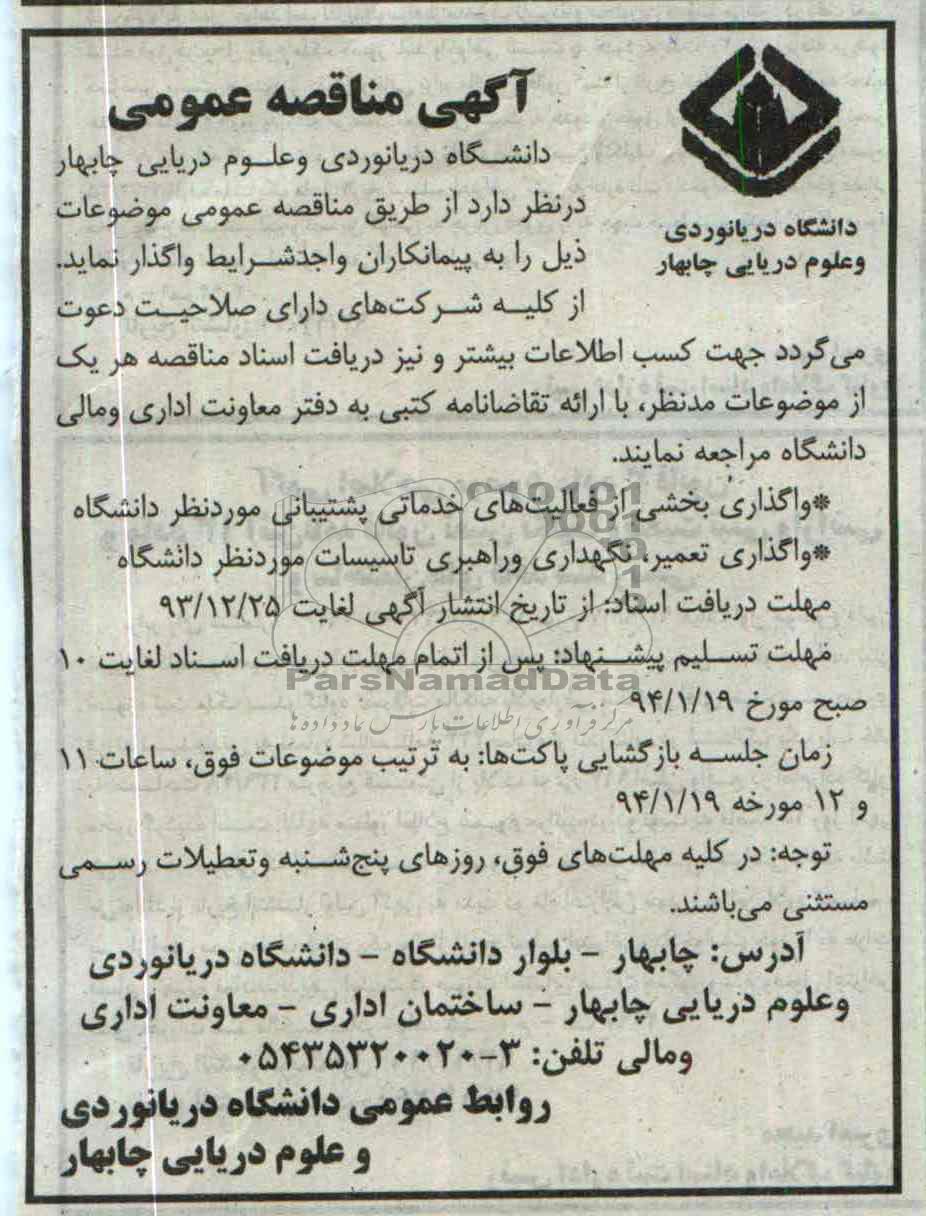 آگهی مناقصه عمومی
دانشگاه دریانوردی
وعلوم دریایی چابهار
دانشگاه دریانوردی وعلوم دریایی چابهار
درنظر دارد از طریق مناقصه عمومی موضوعات
ذیل را به پیمانکاران واجدشرایط واگذار نماید.
از کلیه شرکت‌های دارای صلاحیت دعوت
می‌گردد جهت کسب اطلاعات بیشتر و نیز دریافت اسناد مناقصه هر یک
از موضوعات مدنظر، با ارائه تقاضانامه کتبی به دفتر معاونت اداری ومالی
دانشگاه مراجعه نمایند.
*واگذاری بخشی از فعالیت‌های خدماتی پشتیبانی موردنظر دانشگاه
*واگذاری تعمیر، نگهداری وراهبری تاسیسات موردنظر دانشگاه
مهلت دریافت اسناد: از تاریخ انتشار آگهی لغایت ۹۳/۱۲/۲۵
مهلت تسلیم پیشنهاد: پس از اتمام مهلت دریافت اسناد لغایت ۱۰
صبح مورخ ۹۴/۱/۱۹
ParsNamadData
مرکز فرآوری اطلاعات پارس نماد داده ها
زمان جلسه بازگشایی پاکت‌ها: به ترتیب موضوعات فوق، ساعات ۱۱
و ۱۲ مورخه ۹۴/۱/۱۹
توجه: در کلیه مهلت‌های فوق، روزهای پنج‌شنبه وتعطیلات رسمی
مستثنی می‌باشند.
آدرس: چابهار - بلوار دانشگاه - دانشگاه دریانوردی
وعلوم دریایی چابهار - ساختمان اداری - معاونت اداری
ومالی تلفن: ۳-۰۵۴۳۵۳۲۰۰۲۰
روابط عمومی دانشگاه دریانوردی
و علوم دریایی چابهار